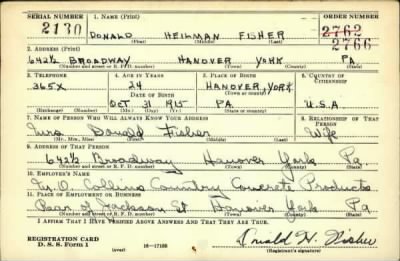 SERIAL NUMBER 1. NAME (Print) ORDER NUMBER
2130 DONALD HEILMAN FISHER 2762
(First) (Middle) (Last) 2766
2. ADDRESS (Print)
642½ BROADWAY HANOVER YORK PA.
(Number and street or R. F. D. number) (Town) (County) (State)
3. TELEPHONE 4. AGE IN YEARS 5. PLACE OF BIRTH 6. COUNTRY OF CITIZENSHIP
365X 24 HANOVER, YORK
DATE OF BIRTH (Town or county)
OCT 31 1915 PA. U.S.A
(Exchange) (Number) (Mo.) (Day) (Yr.) (State or country)
7. NAME OF PERSON WHO WILL ALWAYS KNOW YOUR ADDRESS 8. RELATIONSHIP OF THAT PERSON
Mrs. Donald Fisher Wife
(Mr., Mrs., Miss) (First) (Middle) (Last)
9. ADDRESS OF THAT PERSON
642½ Broadway Hanover York Pa.
(Number and street or R. F. D. number) (Town) (County) (State)
10. EMPLOYER'S NAME
Collins Country Concrete Products
11. PLACE OF EMPLOYMENT OR BUSINESS
Rear of Jackson St Hanover York Pa
(Number and street or R. F. D. number) (Town) (County) (State)
I AFFIRM THAT I HAVE VERIFIED ABOVE ANSWERS AND THAT THEY ARE TRUE.
REGISTRATION CARD
D. S. S. Form 1 (over) 16—17105 Donald H. Fisher
(Registrant's signature)